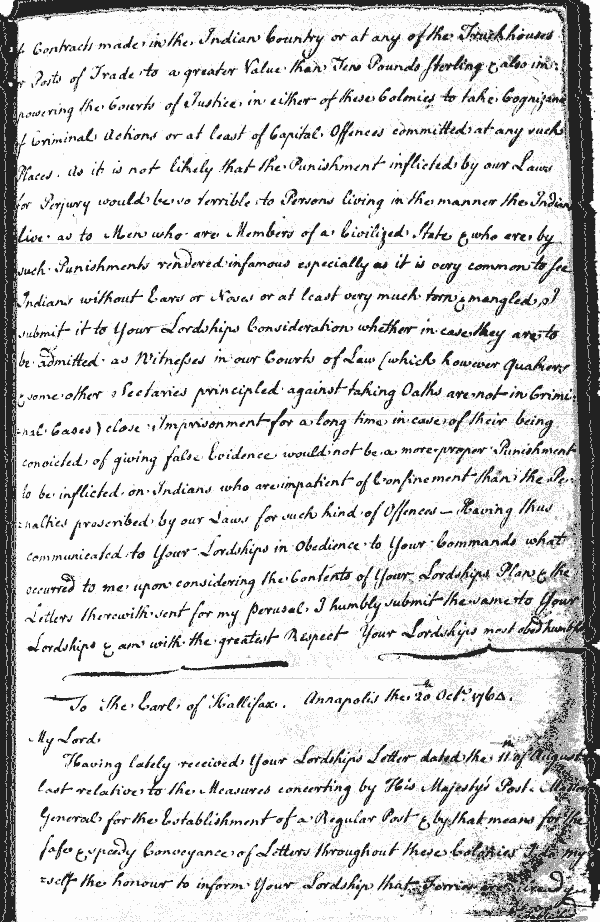 Contracts made in the Indian Country or at any of the Truckhouses
or Posts of Trade to a greater Value than Ten Pounds Sterling & also im=
powering the Courts of Justice in either of these Colonies to take Cognizance
of Criminal Actions or at least of Capital Offences committed at any such
Places. As it is not likely that the Punishment inflicted by our Laws
for Perjury would be so terrible to Persons living in the manner the Indians
live as to Men who are Members of a Civilized State & who are by
such Punishments rendered infamous especially as it is very common to see
Indians without Ears or Noses or at least very much torn & mangled, I
submit it to Your Lordships Consideration whether in case they are to
be admitted as Witnesses in our Courts of Law (which however Quakers
& some other Sectaries principled against taking Oaths are not in Crimi=
=nal Cases) close Imprisonment for a long time in case of their being
convicted of giving false Evidence would not be a more proper Punishment
to be inflicted on Indians who are impatient of Confinement than the Pe=
=nalties proscribed by our Laws for such kind of Offences — Having thus
communicated to Your Lordships in Obedience to Your Commands what
occurred to me upon considering the Contents of Your Lordships Plan & the
Letters therewith sent for my perusal I humbly submit the same to Your
Lordships & am with the greatest Respect Your Lordships most obed humble
To the Earl of Hallifax. Annapolis the 20th Octr. 1764.
My Lord
Having lately received Your Lordship's Letter dated the 11th of August
last relative to the Measures concerting by His Majesty's Post Master
General for the Establishment of a Regular Post & by that means for the
safe & speedy Conveyance of Letters throughout these Colonies I do my
=self the honour to inform Your Lordship that Ferries are already